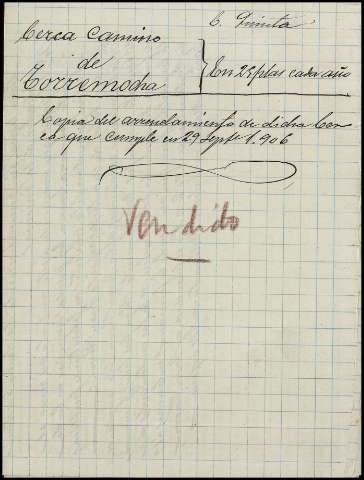 C. Quinta
Cerca Camino
de
Torremocha
En 25 ptas cada año
Copia del arrendamiento de dicha Cer
ca que cumple en 29 Septe 1.906
Vendido